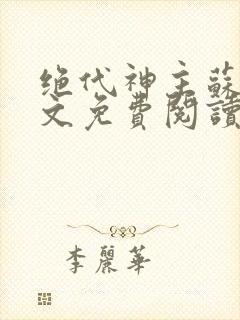 绝代神主蘇
文免費閱讀
李麗華